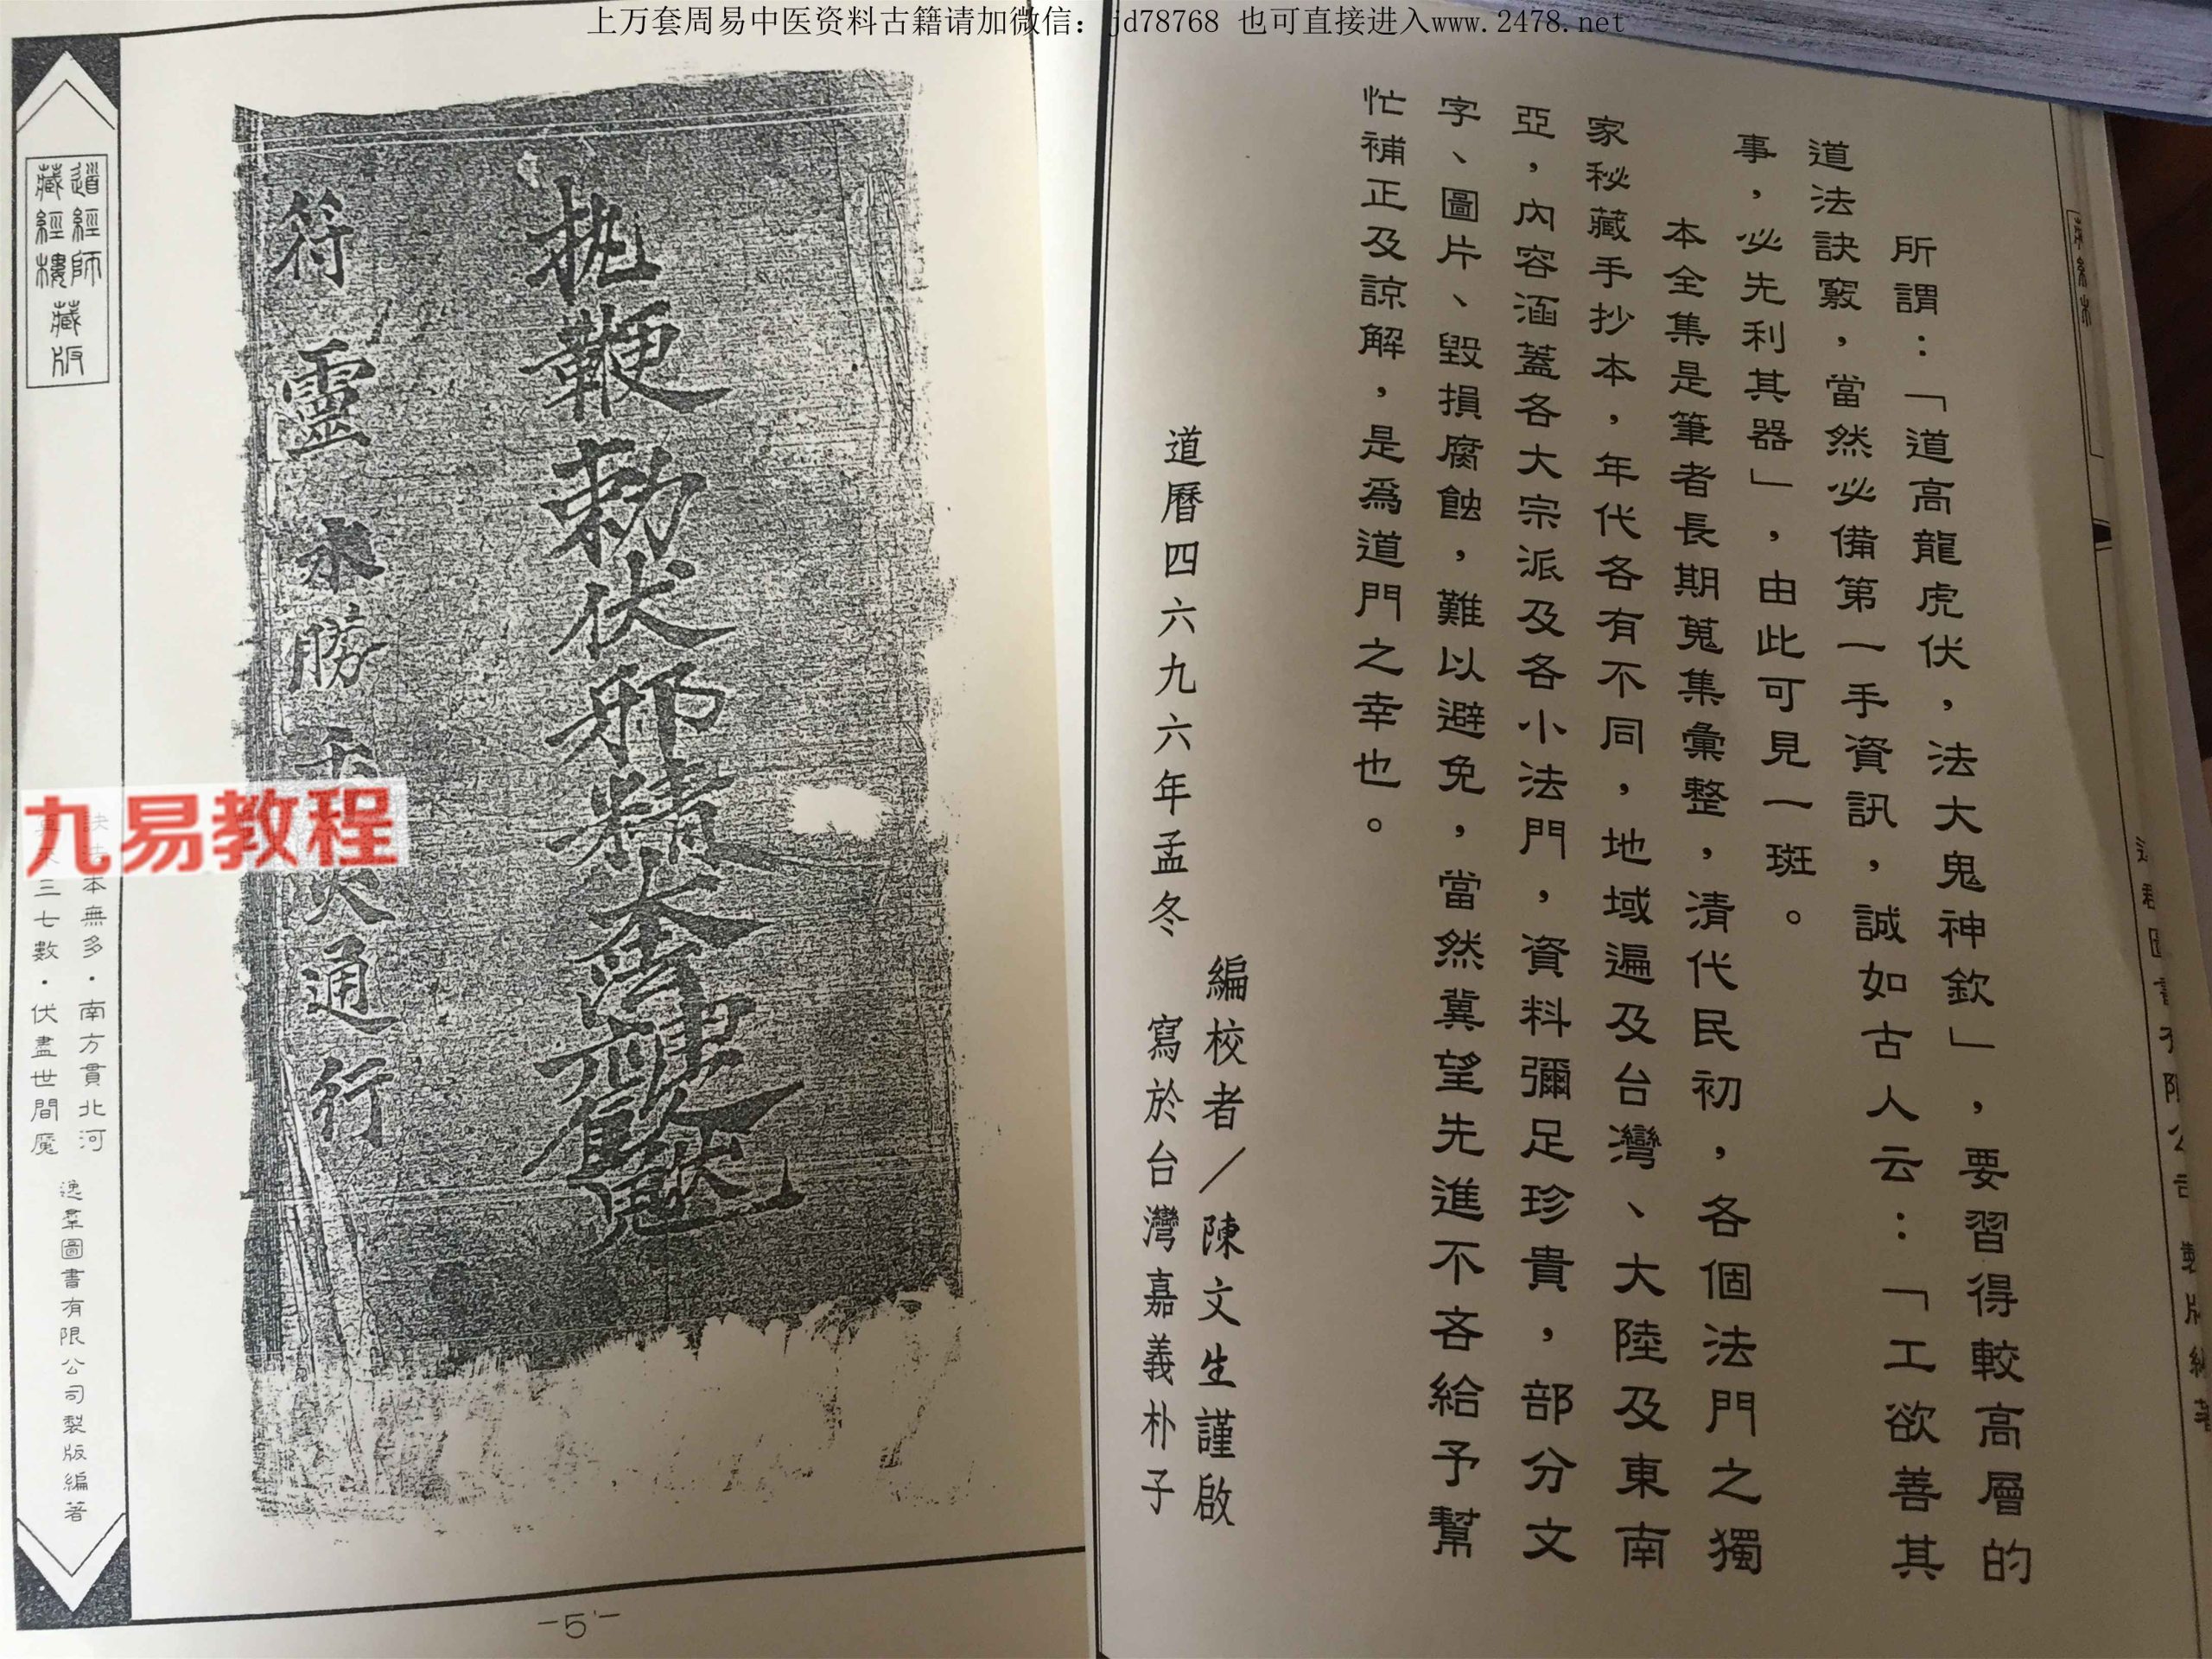 上万套周易中医资料古籍请加微信：jd78768 也可直接进入www.2478.net
所謂：「道高龍虎伏，法大鬼神欽」，要習得較高層的
道法訣竅，當然必備第一手資訊，誠如古人云：「工欲善其
事，必先利其器」，由此可見一斑。
本全集是筆者長期蒐集彙整，清代民初，各個法門之獨
家秘藏手抄本，年代各有不同，地域遍及台灣、大陸及東南
亞，內容涵蓋各大宗派及各小法門，資料彌足珍貴，部分文
字、圖片、毀損腐蝕，難以避免，當然冀望先進不吝給予幫
忙補正及諒解，是為道門之幸也。
編校者／陳文生謹啟
道曆四六九六年孟冬 寫於台灣嘉義朴子
執鞭勅伏邪精
符靈水勝
通行
道經師
藏經樓
藏版
九易教程
本無多・南方貫北河
三七數・伏盡世間魔
逸羣圖書有限公司製版編著
-5-